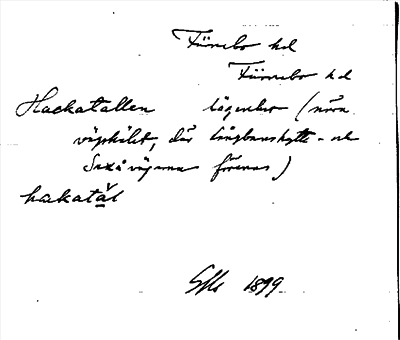 Färnebo hd
Färnebo hd
Hackatallen lägenhet (nära
vägskälet, där Långbanshytte- och
Saxåvägarna förenas)
hackatàl
1899